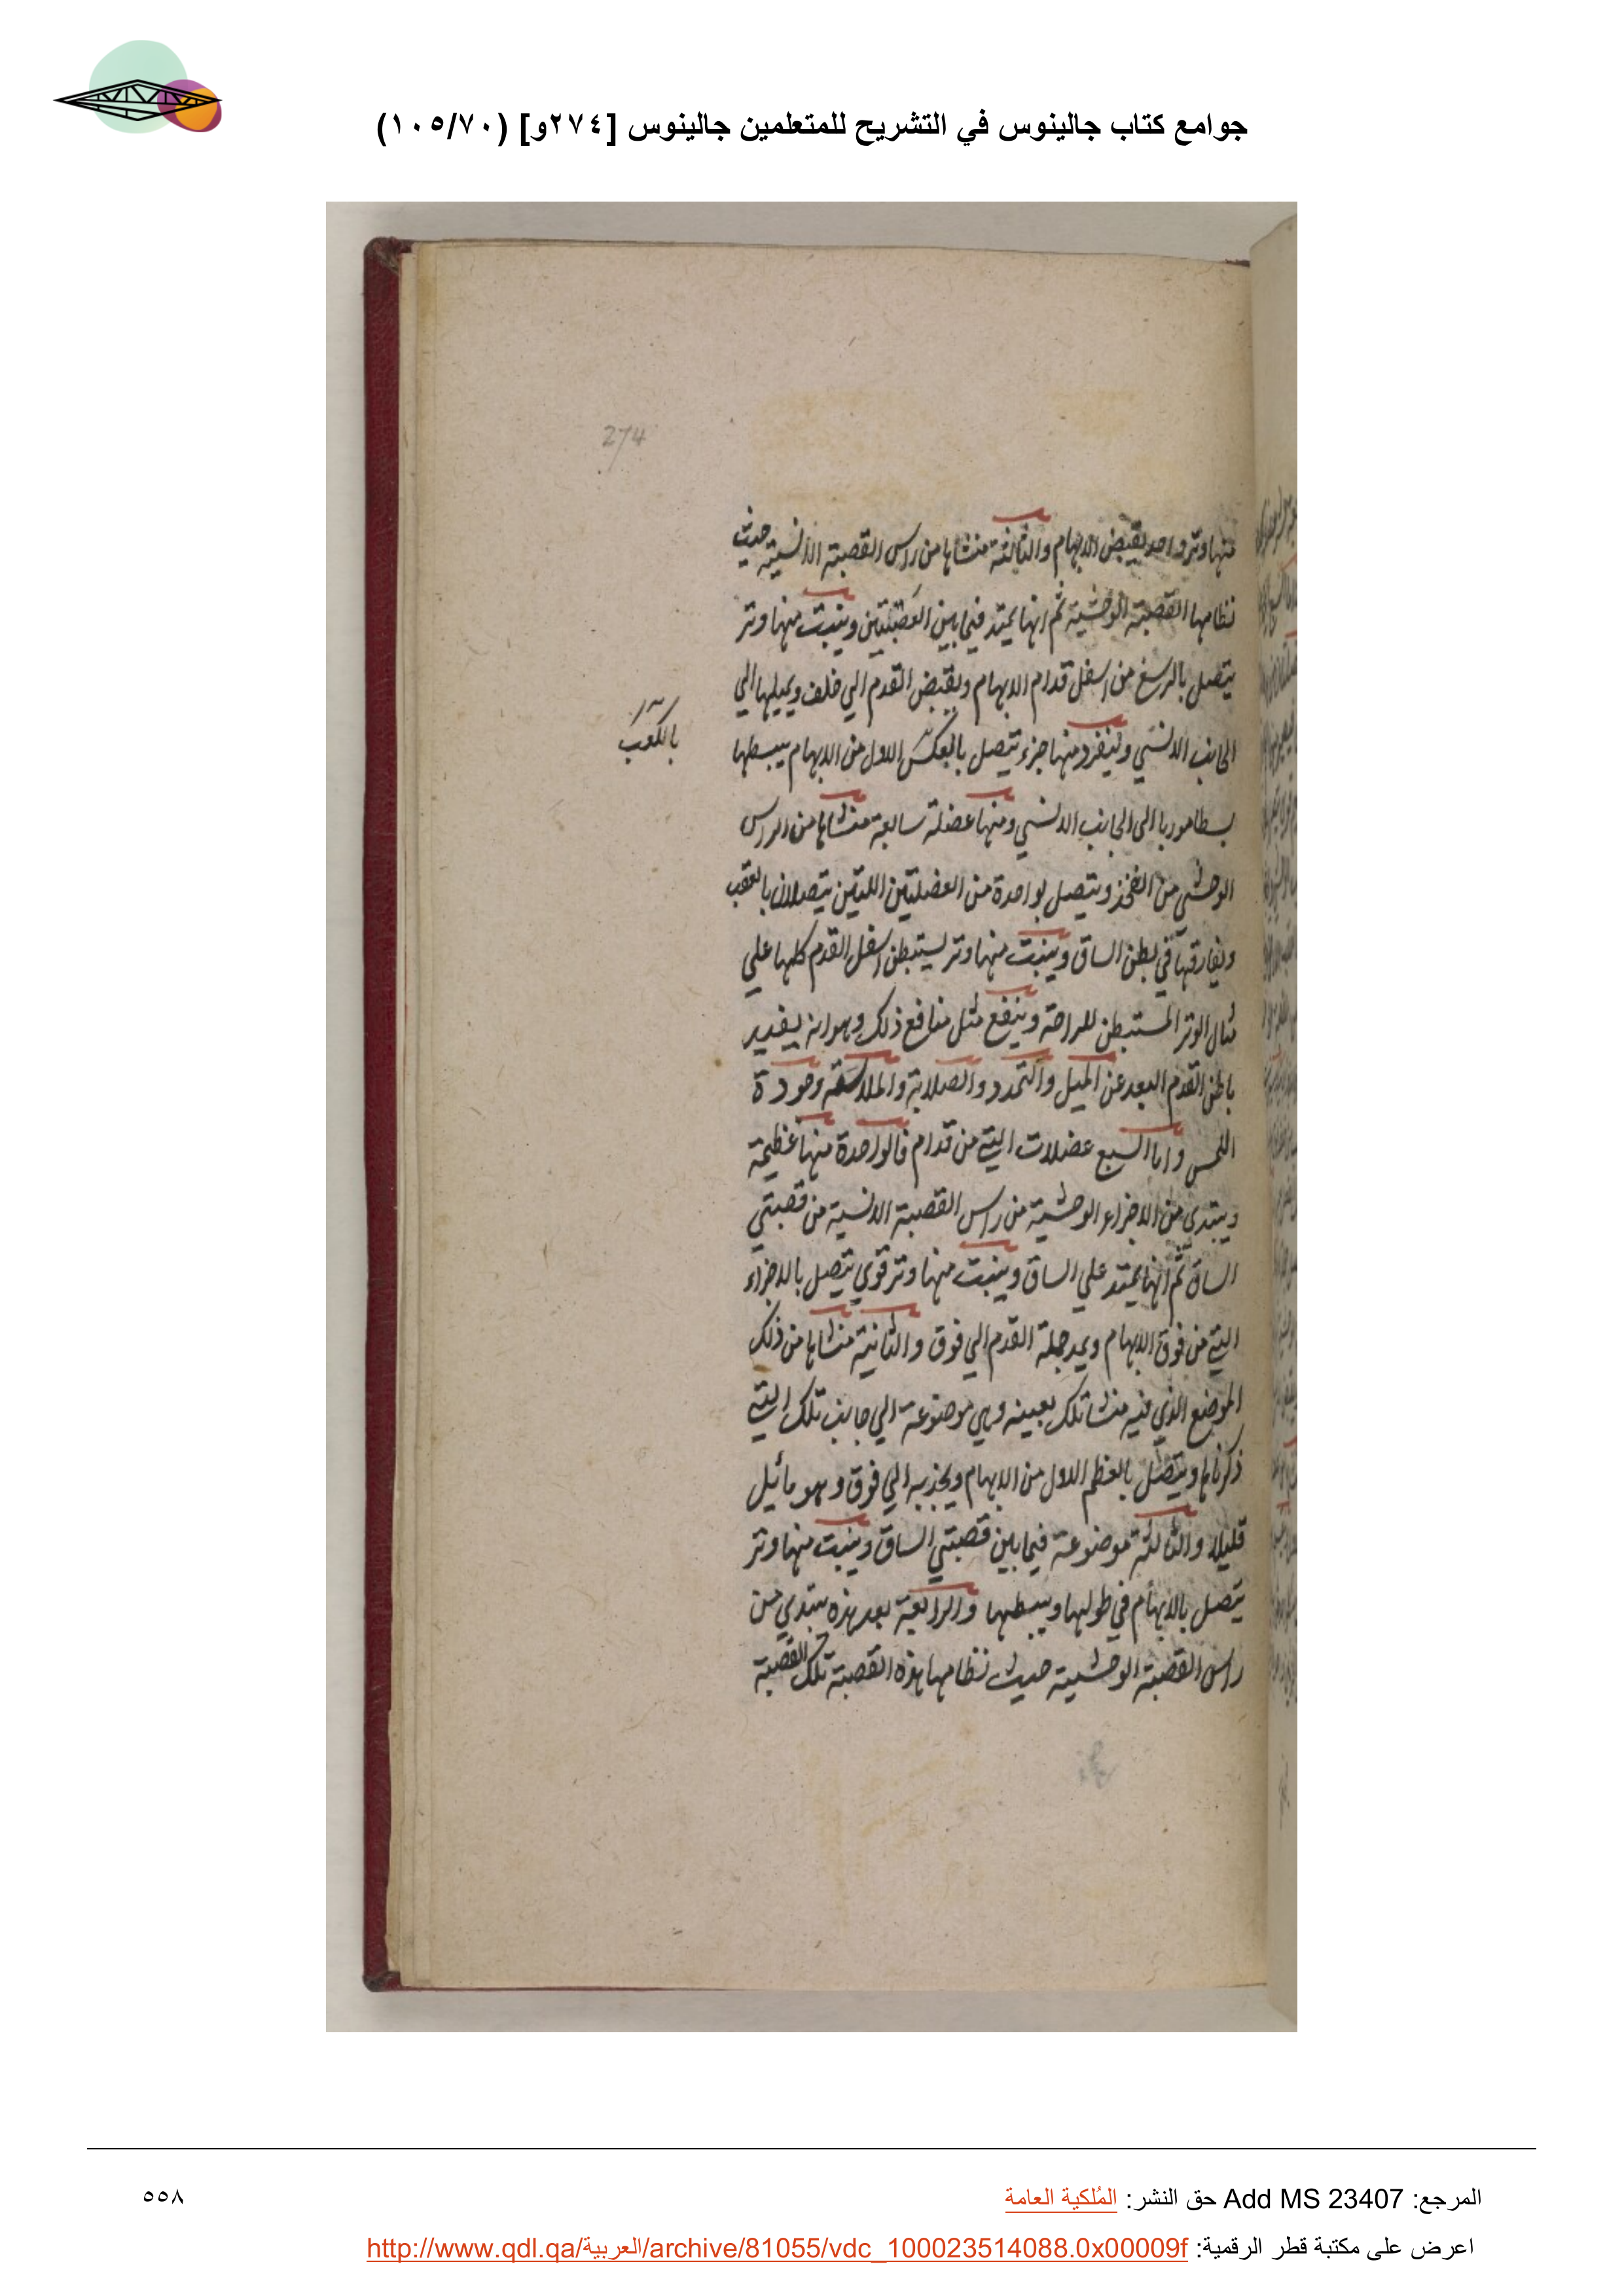 جوامع كتاب جالينوس في التشريح للمتعلمين جالينوس [٢٧٤و] (١٠٥/٧٠)
274
منها وتر واحد يقبض الابهام والثالثة منشاها من راس القصبة الانسية حيث
نظامها القصبة الوحشية ثم انها يمتد فيما بين العضلتين وينبت منها وتر
يتصل بالرسغ من اسفل قدام الابهام ويقبض القدم الي خلف ويميلها الي
الجانب الانسي وينفرد منها جزء يتصل بالعكس الاول من الابهام يبسطها
بالكعب
بسطا موربا الى الجانب الانسي ومنها عضلة سابعة منشاها من الراس
الوحشي من الفخذ ويتصل بواحدة من العضلتين اللتين يتصلان بالعقب
ويفارقها في بطن الساق وينبت منها وتر يستبطن اسفل القدم كلها علي
مثال الوتر المستبطن للراحة وينفع مثل منافع ذلك وهو انه يفيد
باطن القدم البعد عن الميل والتمدد والصلابة والملاسة وجودة
اللمس واما السبع عضلات التي من قدام فالواحدة منها عظيمة
ويبتدي من الاجزاء الوحشية من راس القصبة الانسية من قصبتي
الساق ثم انها يمتد علي الساق وينبت منها وتر قوي يتصل بالاجزاء
التي من فوق الابهام ويمد جملة القدم الي فوق والثانية منشاها من ذلك
الموضع الذي فيه منشا تلك بعينه وهي موضوعة الي جانب تلك التي
ذكرناها ويتصل بالعظم الاول من الابهام ويجذبه الي فوق وهو مائل
قليلا والثالثة موضوعة فيما بين قصبتي الساق وينبت منها وتر
يتصل بالابهام في طولها ويبسطها والرابعة بعد هذه يبتدي من
راس القصبة الوحشية حيث نظامها هذه القصبة تلك القصبة
المرجع: Add MS 23407 حق النشر: المُلكية العامة
٥٥٨
اعرض على مكتبة قطر الرقمية: http://www.qdl.qa/العربية/archive/81055/vdc_100023514088.0x00009f